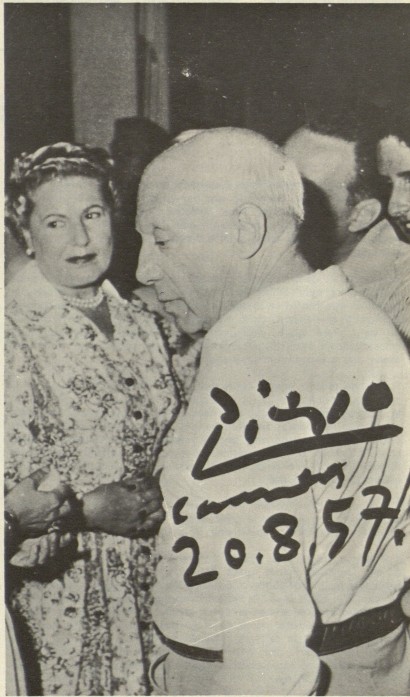 Picasso
Cannes
20.8.57.